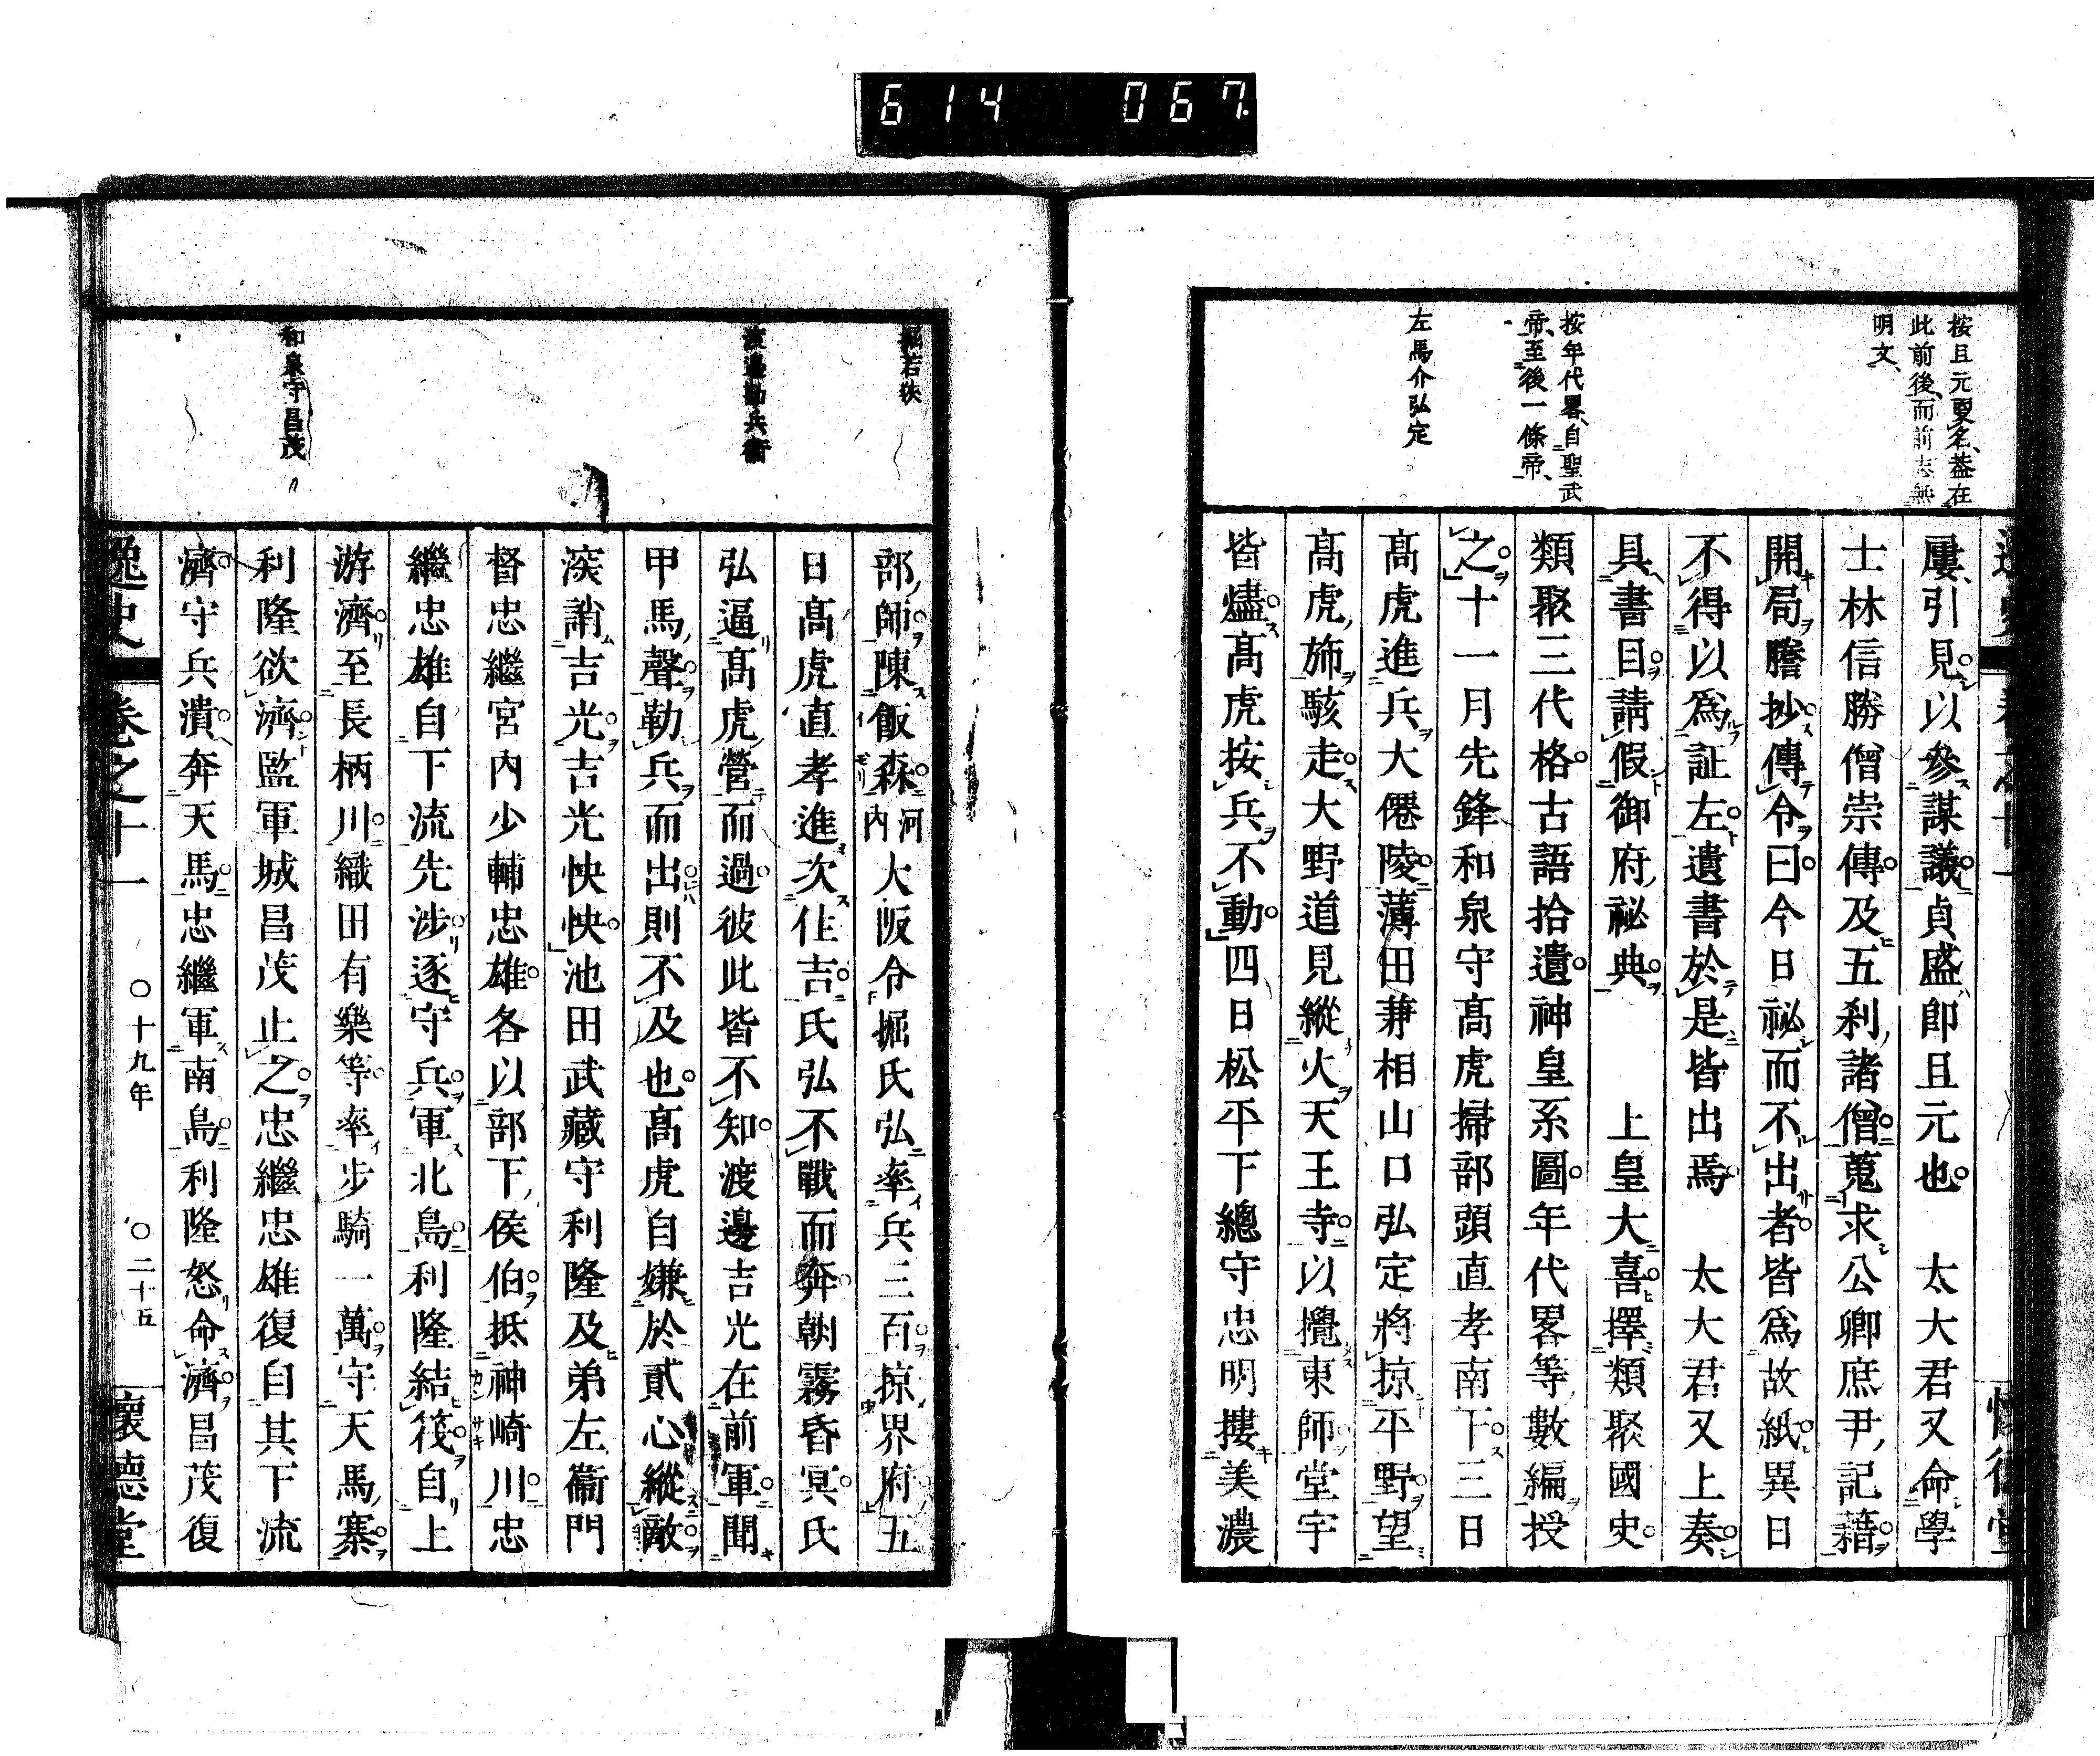 614 067
按且元更名、葢在
此前後、而前志無
明文、
按年代畧、自聖武
帝、至後一條帝、
左馬介弘定
屢引見以參謀議貞盛卽且元也 太大君又命學
士林信勝僧崇傳及五刹諸僧蒐求公卿庶尹記籍
開局謄抄傳令曰今日祕而不出者皆爲故紙異日
不得以爲証左遺書於是皆出焉 太大君又上奏
具書目請假御府祕典 上皇大喜擇類聚國史
類聚三代格古語拾遺神皇系圖年代畧等數編授
之十一月先鋒和泉守高虎掃部頭直孝南下三日
高虎進兵大僊陵薄田兼相山口弘定將掠平野望
高虎斾駭走大野道見縱火天王寺以攪東師堂宇
皆燼高虎按兵不動四日松平下總守忠明摟美濃
堀若狹
渡邊勘兵衞
和泉守昌茂
部師陳飯森河內大阪令堀氏弘率兵三百掠界府五
日高虎直孝進次住吉氏弘不戰而奔朝霧昏冥氏
弘逼高虎營而過彼此皆不知渡邊吉光在前軍聞
甲馬聲勒兵而出則不及也高虎自嫌於貳心縱敵
深誚吉光吉光怏怏池田武藏守利隆及弟左衞門
督忠繼宮內少輔忠雄各以部下侯伯抵神崎川忠
繼忠雄自下流先涉逐守兵軍北島利隆結筏自上
游濟至長柄川織田有樂等率步騎一萬守天馬寨
利隆欲濟監軍城昌茂止之忠繼忠雄復自其下流
濟守兵潰奔天馬忠繼軍南島利隆怒命濟昌茂復
逸史 卷之十一 〇十九年 〇二十五 懷德堂